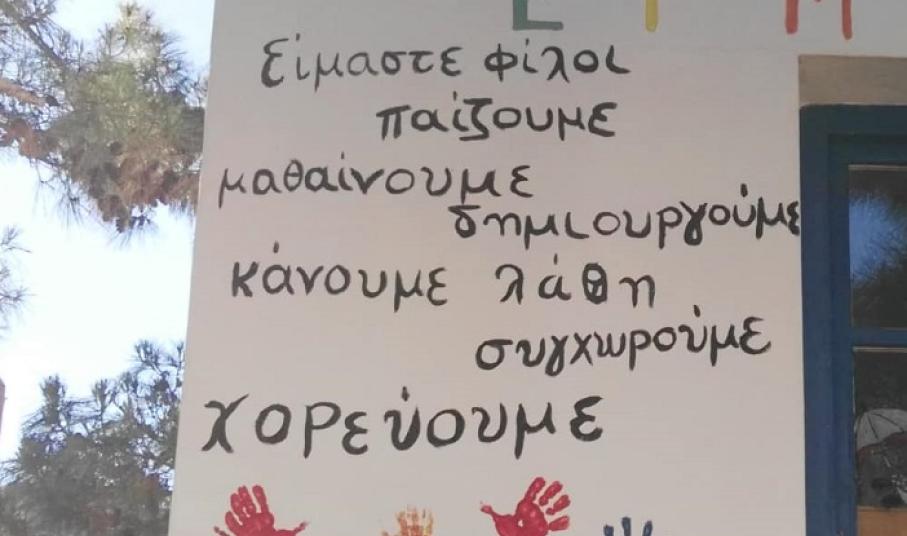 είμαστε φίλοι
παίζουμε
μαθαίνουμε
δημιουργούμε
κάνουμε λάθη
συγχωρούμε
χορεύουμε